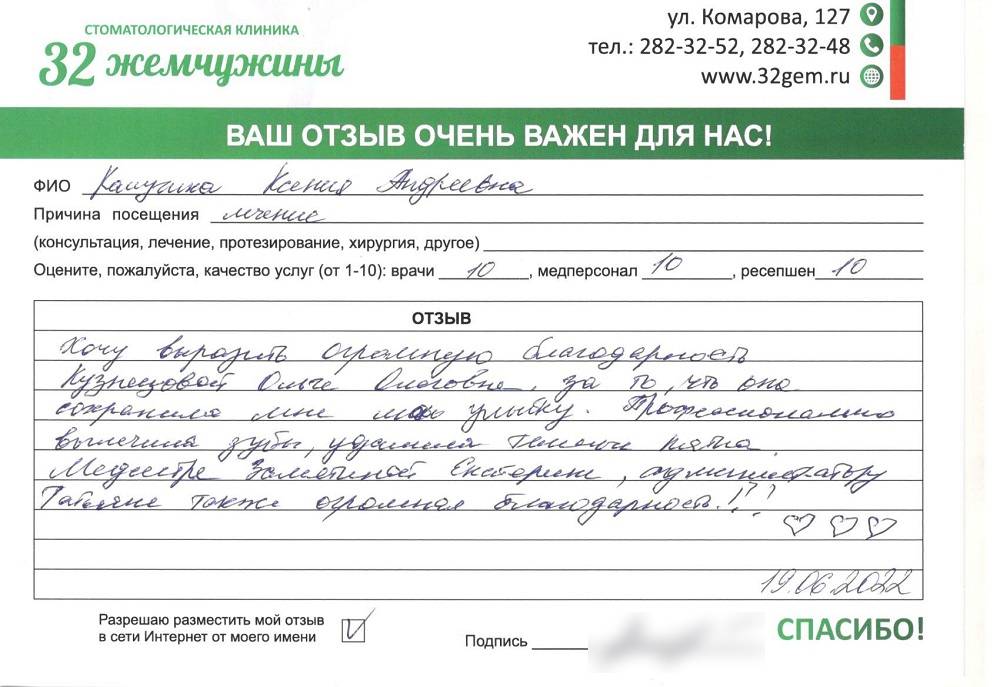 СТОМАТОЛОГИЧЕСКАЯ КЛИНИКА
32 жемчужины
ул. Комарова, 127
тел.: 282-32-52, 282-32-48
www.32gem.ru
ВАШ ОТЗЫВ ОЧЕНЬ ВАЖЕН ДЛЯ НАС!
ФИО Ксения Андреевна
Причина посещения лечение
(консультация, лечение, протезирование, хирургия, другое)
Оцените, пожалуйста, качество услуг (от 1-10): врачи 10, медперсонал 10, ресепшен 10
ОТЗЫВ
Хочу выразить огромную благодарность
Кузнецовой Ольге Олеговне, за то, что она
сохранила мне мою улыбку. Профессионально
вылечила зубы, удалила темные пятна.
Медсестре Екатерине, администратору
Татьяне также огромная благодарность!!!
19.06.2022
Разрешаю разместить мой отзыв
в сети Интернет от моего имени
Подпись
СПАСИБО!